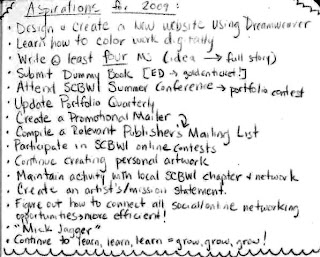 Aspirations for 2009:
· Design & Create a New website using Dreamweaver
· Learn how to color work digitally
· Write @ least four Ms (idea → full story)
· Submit Dummy Book [ED → golden ticket!]
· Attend SCBWI Summer Conference → portfolio contest
· Update Portfolio Quarterly
· Create a Promotional Mailer
· Compile a Relevant Publisher's Mailing List
· Participate in SCBWI online contests
· Continue creating personal artwork
· Maintain activity with local SCBWI chapter & network
· Create an artist's/mission statement.
· Figure out how to connect all social/online networking
opportunities → more efficient!
· "Mick Jagger"
· Continue to learn, learn, learn = grow, grow, grow!